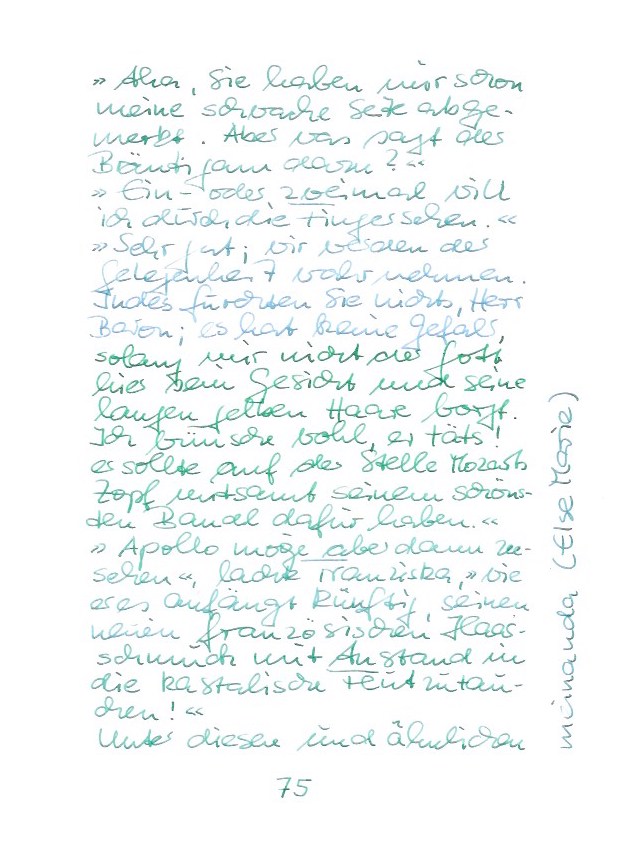 » Aha, Sie haben mir schon
meine schwache Seite abge-
merkt. Aber was sagt der
Bräutigam davon?«
» Ein- oder zweimal will
ich durch die Finger sehen.«
» Sehr gut; wir werden der
Gelegenheit wahrnehmen.
Indes fürchten Sie nichts, Herr
Baron; es hat keine Gefahr,
solang mir nicht der Gott
hier sein Gesicht und seine
langen gelben Haare borgt.
Ich wünsche wohl, er täts!
er sollte auf der Stelle Mozarts
Zopf mitsamt seinem schöns-
ten Bandl dafür haben.«
» Apollo möge aber dann zu-
sehen«, lachte Franziska, » wie
er es anfängt künftig, seinen
neuen französischen Haar-
schmuck mit Anstand in
die kastalische Flut zu tau-
chen!«
Unter diesen und ähnlichen
75
meinanda (Else Marie)